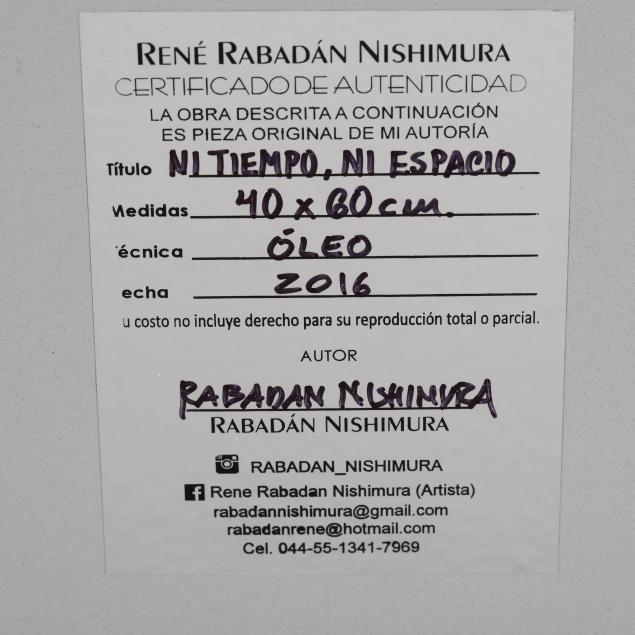 RENÉ RABADÁN NISHIMURA
CERTIFICADO DE AUTENTICIDAD
LA OBRA DESCRITA A CONTINUACIÓN
ES PIEZA ORIGINAL DE MI AUTORÍA
Título NI TIEMPO, NI ESPACIO
Medidas 40 x 60 cm.
écnica ÓLEO
echa 2016
u costo no incluye derecho para su reproducción total o parcial.
AUTOR
RABADAN NISHIMURA
RABADÁN NISHIMURA
RABADAN_NISHIMURA
Rene Rabadan Nishimura (Artista)
rabadannishimura@gmail.com
rabadanrene@hotmail.com
Cel. 044-55-1341-7969